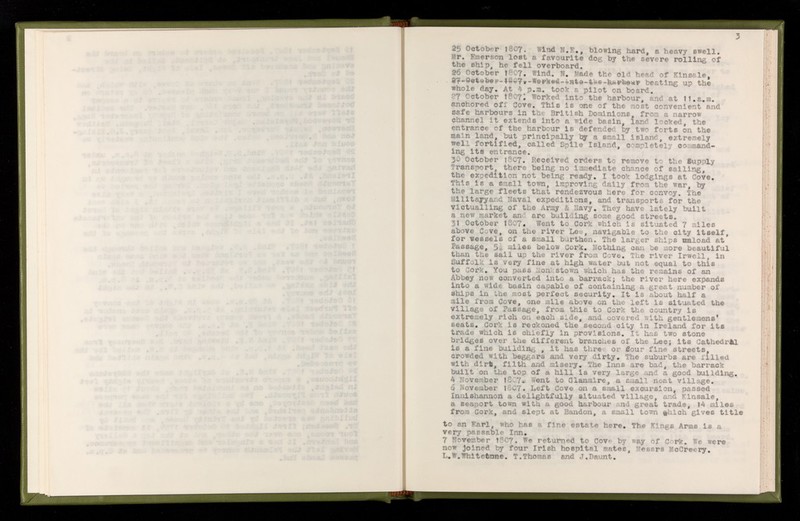 3
25 October 1807. Wind N.E., blowing hard, a heavy swell.
Mr. Emerson lost a favourite dog by the severe rolling of
the ship, he fell overboard.
26 October 1807. Wind. N. Made the old head of Kinsale,
27 October 1807. Worked into the harbour beating up the
whole day. At 4 p.m. took a pilot on board.
27 October 1807. Worked into the harbour, and at 11.a.m.
anchored off Cove. This is one of the most convenient and
safe harbours in the British Dominions, from a narrow
channel it extends into a wide basin, land locked, the
entrance of the harbour is defended by two forts on the
main land, but principally by a small island, extremely
well fortified, called Spile Island, completely command-
ing its entrance.
30 October 1807. Received orders to remove to the Supply
Transport, there being no immediate chance of sailing,
the expedition not being ready. I took lodgings at Cove.
This is a small town, improving daily from the war, by
the large fleets that rendezvous here for convoy. The
Military and Naval expeditions, and transports for the
victualling of the Army & Navy. They have lately built
a new market and are building some good streets.
31 October 1807. Went to Cork which is situated 7 miles
above Cove, on the river Lee, navigable to the city itself,
for vessels of a small burthen. The larger ships unload at
Passage, 5½ miles below Cork. Nothing can be more beautiful
than the sail up the river from Cove. The river Irwell, in
Suffolk is very fine at high water but not equal to this
to Cork. You pass Monkstown which has the remains of an
Abbey now converted into a barrack; the river here expands
into a wide basin capable of containing a great number of
ships in the most perfect security. It is about half a
mile from Cove, one mile above on the left is situated the
village of Passage, from this to Cork the country is
extremely rich on each side, and covered with gentlemens'
seats. Cork is reckoned the second city in Ireland for its
trade which is chiefly in provisions. It has two stone
bridges over the different branches of the Lee; its Cathedral
is a fine building , it has three or four fine streets,
crowded with beggars and very dirty. The suburbs are filled
with dirt, filth and misery. The Inns are bad, the barrack
built on the top of a hill is very large and a good building.
4 November 1807. Went to Glanmire, a small neat village.
6 November 1807. Left Cove on a small excursion, passed
Innishannon a delightfully situated village, and Kinsale,
a seaport town with a good harbour and great trade, 14 miles
from Cork, and slept at Bandon, a small town which gives title
to an Earl, who has a fine estate here. The Kings Arms is a
very passable Inn.
7 November 1807. We returned to Cove by way of Cork. We were
now joined by four Irish hospital mates, Messrs McCreery.
L.W.Whitetone. T.Thomas and J.Daunt.